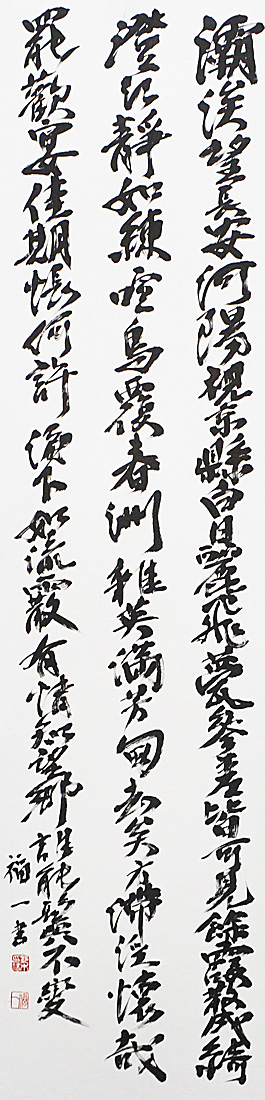 灞涘望長安河陽視京縣白日麗飛甍參差皆可見餘霞散成綺
澄江靜如練喧鳥覆春洲雜英滿芳甸去矣方滯淫懷哉
罷歡宴佳期悵何許淚下如流霰有情知望鄉誰能鬒不變
福一書